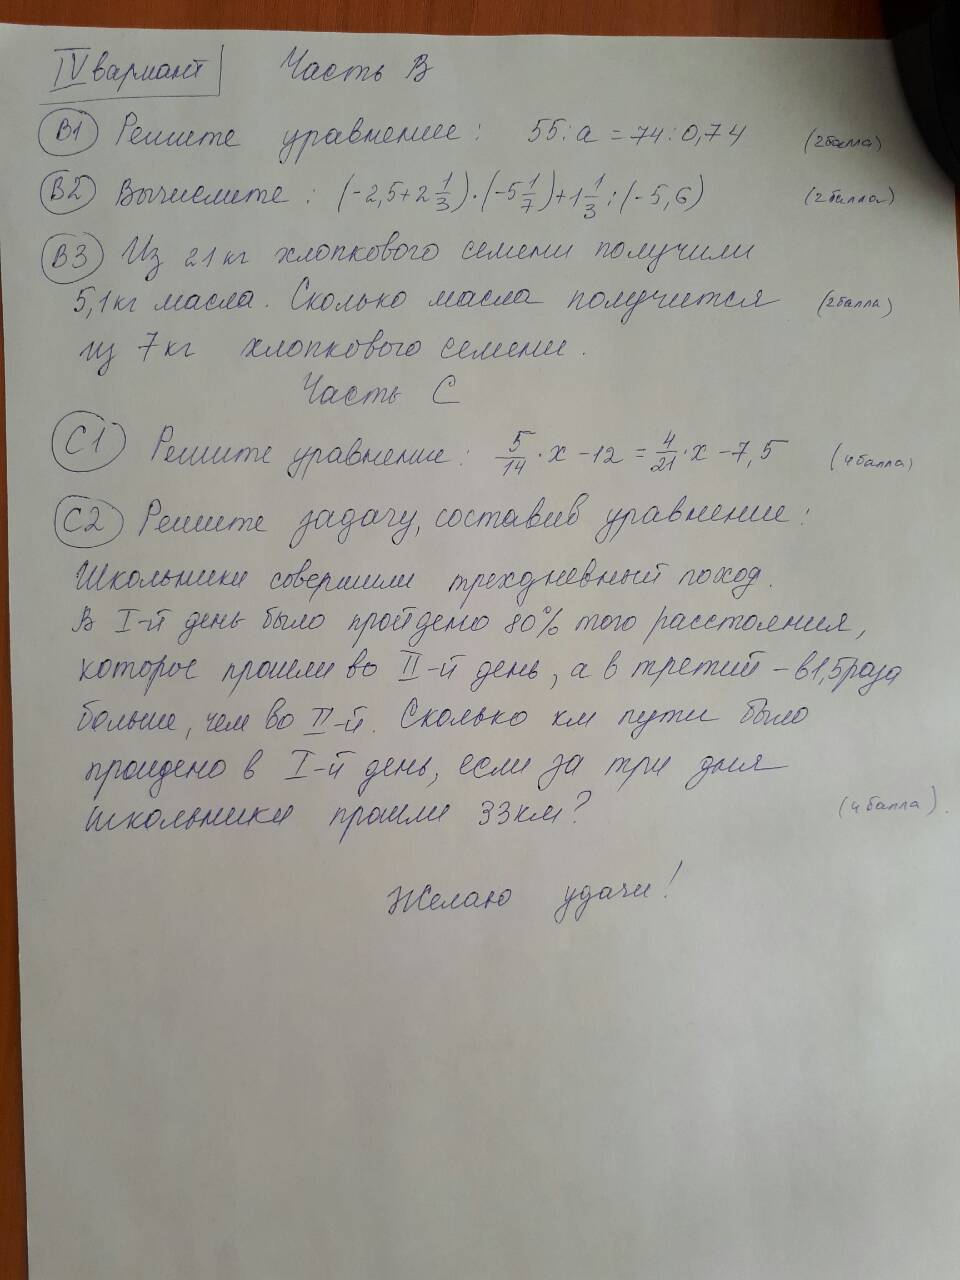 IV вариант Часть В
В1 Решите уравнение: 55:a = 74:0,74 (2 балла)
В2 Вычислите: (-2,5+2 1/3)·(-5 1/7)+1 1/3:(-5,6) (2 балла)
В3 Из 21 кг хлопкового семени получили
5,1 кг масла. Сколько масла получится (2 балла)
из 7 кг хлопкового семени.
Часть С
С1 Решите уравнение: 5/14·x - 12 = 4/21·x - 7,5 (4 балла)
С2 Решите задачу, составив уравнение:
Школьники совершили трехдневный поход.
В I-й день было пройдено 80% того расстояния,
которое прошли во II-й день, а в третий - в 1,5 раза
больше, чем во II-й. Сколько км пути было
пройдено в I-й день, если за три дня
школьники прошли 33 км? (4 балла).
Желаю удачи!